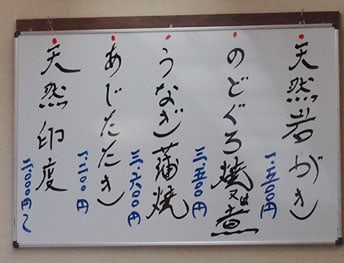 天然岩がき
一、五〇〇円
のどぐろ焼又は煮
三、五〇〇円
うなぎ蒲焼
三、六〇〇円
あじたたき
一、二〇〇円
天然印度
二〇〇〇円〜